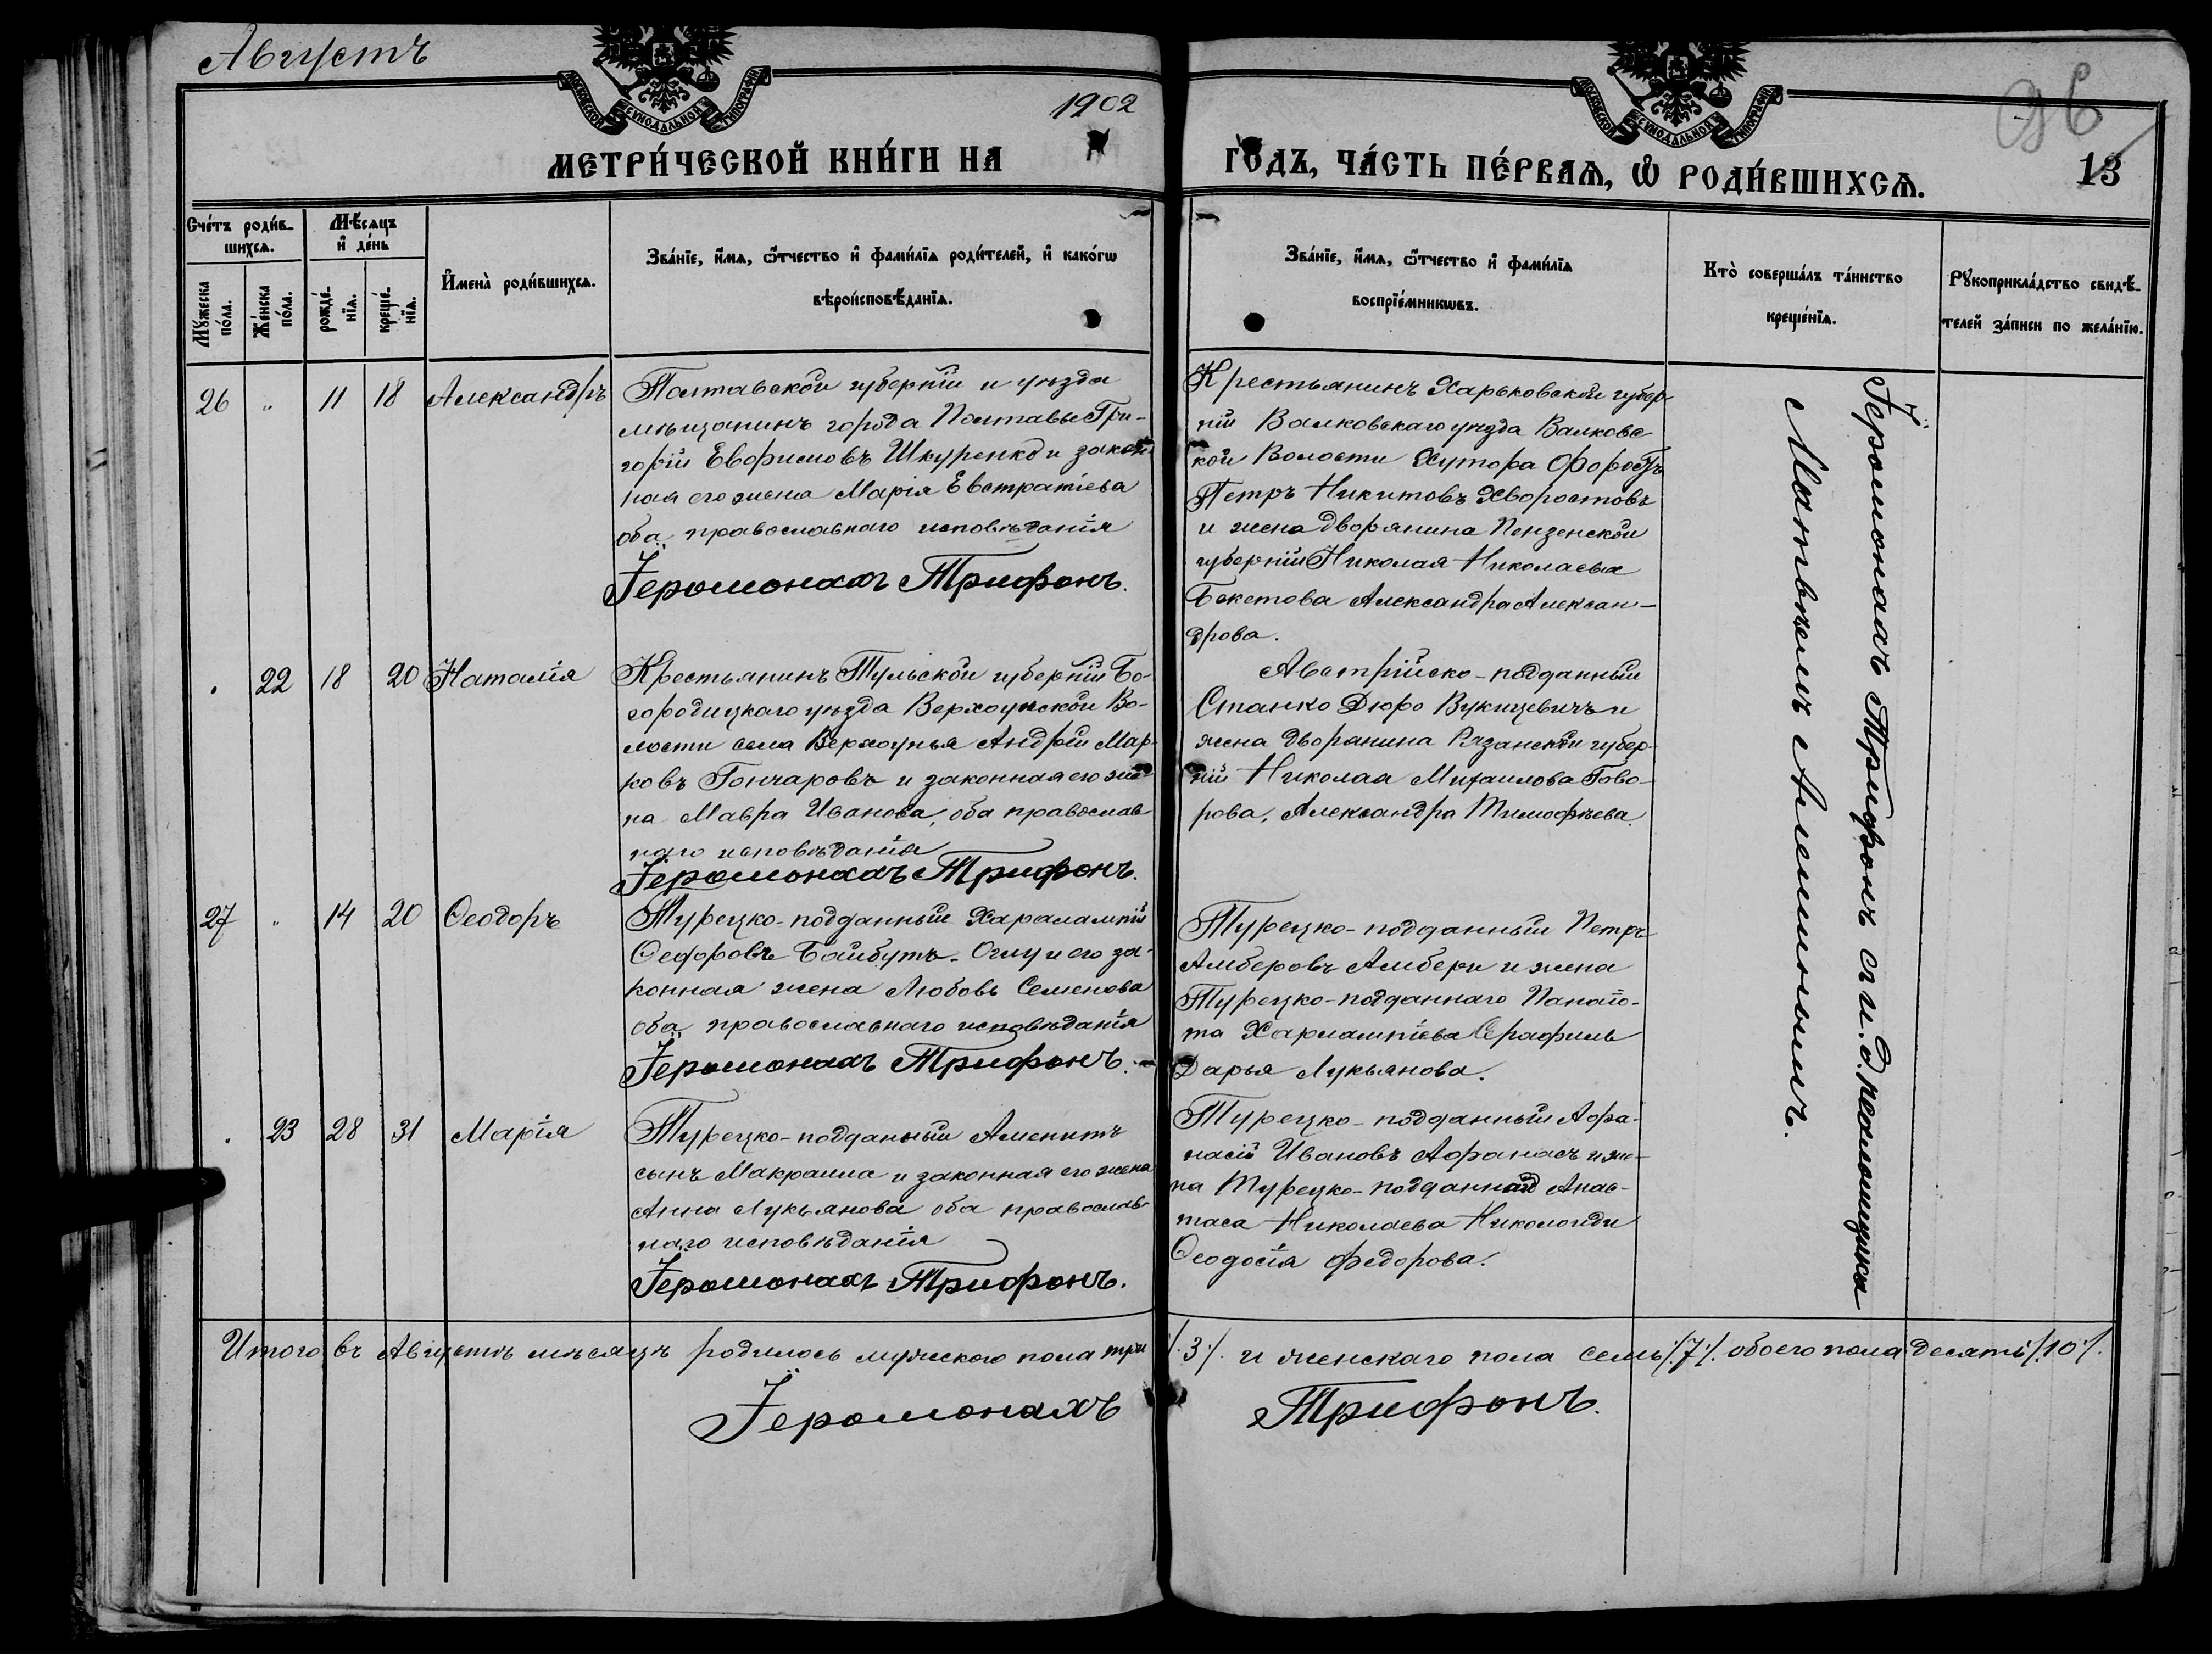 Августъ
1902
96
МОСКОВСКОЙ СѴНОДАЛЬНОЙ ТИПОГРАФІИ
МОСКОВСКОЙ СѴНОДАЛЬНОЙ ТИПОГРАФІИ
МЕТРИ́ЧЕСКОЙ КНИ́ГИ НА
ГО́ДЪ, ЧА́СТЬ ПЕ́РВАѦ, Ѡ РОДИ́ВШИХСѦ.
13
Сче́тъ роди́в-
шихсѧ.
Мꙋ́жеска по́ла.
Же́нска по́ла.
Мѣ́сѧцъ
и҆ де́нь
рожде́-
нїѧ.
креще́-
нїѧ.
И҆мена̀ роди́вшихсѧ.
Зва́нїе, и҆́мѧ, ѻ҆́тчество и҆ фами́лїѧ роди́телей, и҆ како́гѡ
вѣроисповѣ́данїѧ.
Зва́нїе, и҆́мѧ, ѻ҆́тчество и҆ фами́лїѧ
воспрїе́мникѡвъ.
Кто̀ соверша́лъ та́инство
креще́нїѧ.
Рꙋкоприкла́дство свидѣ́-
телей за́писи по жела́нїю.
26 " 11 18 Александръ
Полтавской губерніи и уѣзда
мѣщанинъ города Полтавы Гри-
горій Евфимовъ Шкуренко и закон
ная его жена Марія Евстратіева
оба православнаго исповѣданія
Іеромонахъ Трифонъ.
Крестьянинъ Харьковской губер-
ніи Валковскаго уѣзда Валковс
кой Волости Хутора
Петръ Никитовъ Хворостовъ
и жена дворянина Пензенской
губерніи Николая Николаева
Бекетова Александра Алексан-
дрова.
. 22 18 20 Наталія
Крестьянинъ Тульской губерніи Бо-
городицкаго уѣзда Верхоупской Во-
лости села Верхоупья Андрей Мар-
ковъ Гончаровъ и законная его же-
на Мавра Иванова, оба православ
наго исповѣданія
Іеромонахъ Трифонъ.
Австрійско-подданный
Станко Дюро Вукицевичъ и
жена дворянина Рязанской губер-
ніи Николая Михаилова Гово-
рова, Александра Тимофѣева.
27 " 14 20 Ѳеодоръ
Турецко-подданный Харалампій
Ѳеодоровъ Байбутъ-Оглу и его за-
конная жена Любовь Семенова
оба православнаго исповѣданія
Іеромонахъ Трифонъ.
Турецко-подданный Петръ
Амберовъ Амбери и жена
Турецко-подданнаго Панаіо-
та Харлампіева Серафимъ
Дарья Лукьянова.
. 23 28 31 Марія
Турецко-подданный Аменитъ
сынъ Макраима и законная его жена
Анна Лукьянова оба православ-
наго исповѣданія
Іеромонахъ Трифонъ.
Турецко-подданный Афа-
насій Ивановъ Афанасъ и же-
на Турецко-подданнаго Анас-
таса Николаева Николаиди
Ѳеодосія Федорова.
Іеромонахъ Трифонъ съ и. д. псаломщика
Матвѣемъ Алешинымъ.
Итого въ Августѣ мѣсяцѣ родилось мужескаго пола три ./.3./. и женскаго пола семь ./.7./. обоего пола десять ./.10./.
Іеромонахъ Трифонъ.